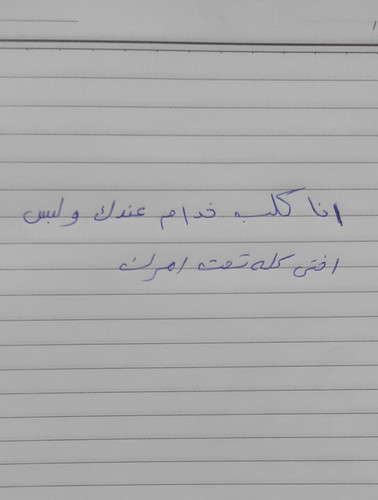 انا كلب خدام عندك وليس
اختي كله تحت امرك